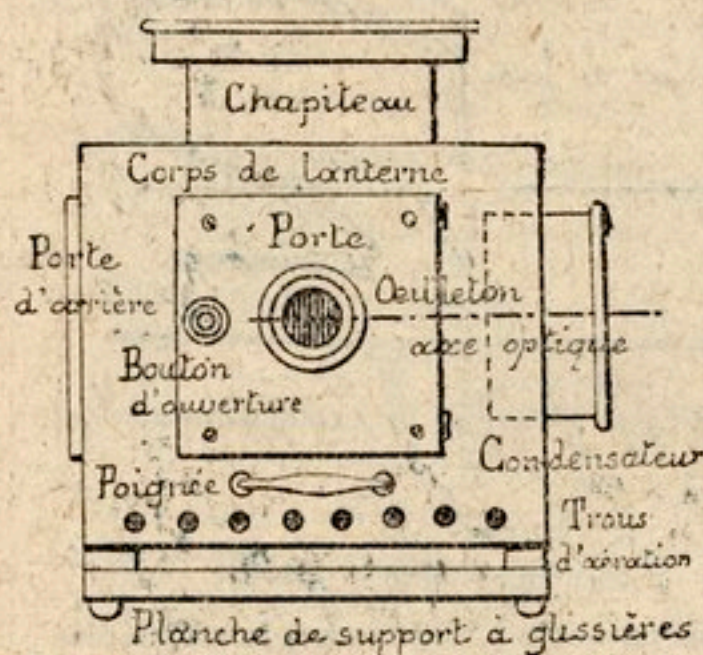 Chapiteau
Corps de lanterne
Porte
Porte
d'arrière
Œuilleton
axe optique
Bouton
d'ouverture
Condensateur
Poignée
Trous
d'aération
Planche de support à glissières